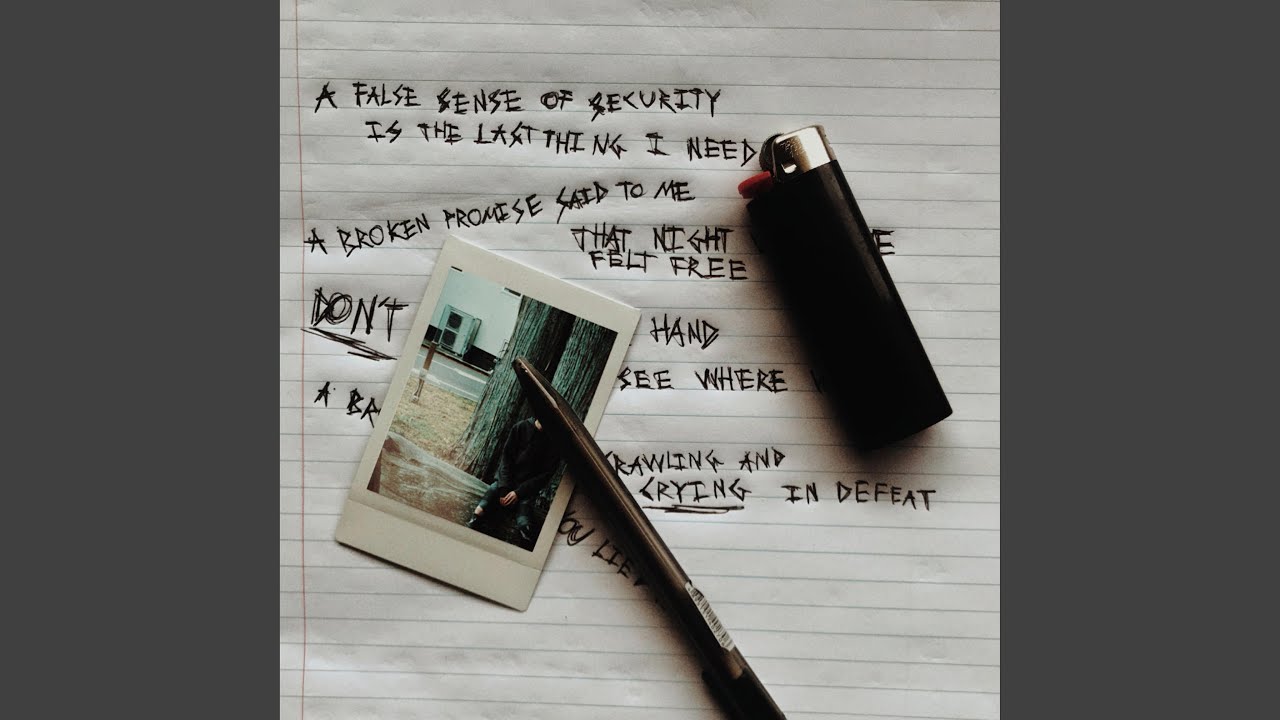 A FALSE SENSE OF SECURITY
IS THE LAST THING I NEED
A BROKEN PROMISE SAID TO ME
THAT NIGHT
FELT FREE
DON'T HAND
SEE WHERE
A
CRAWLING AND
CRYING IN DEFEAT
YOU